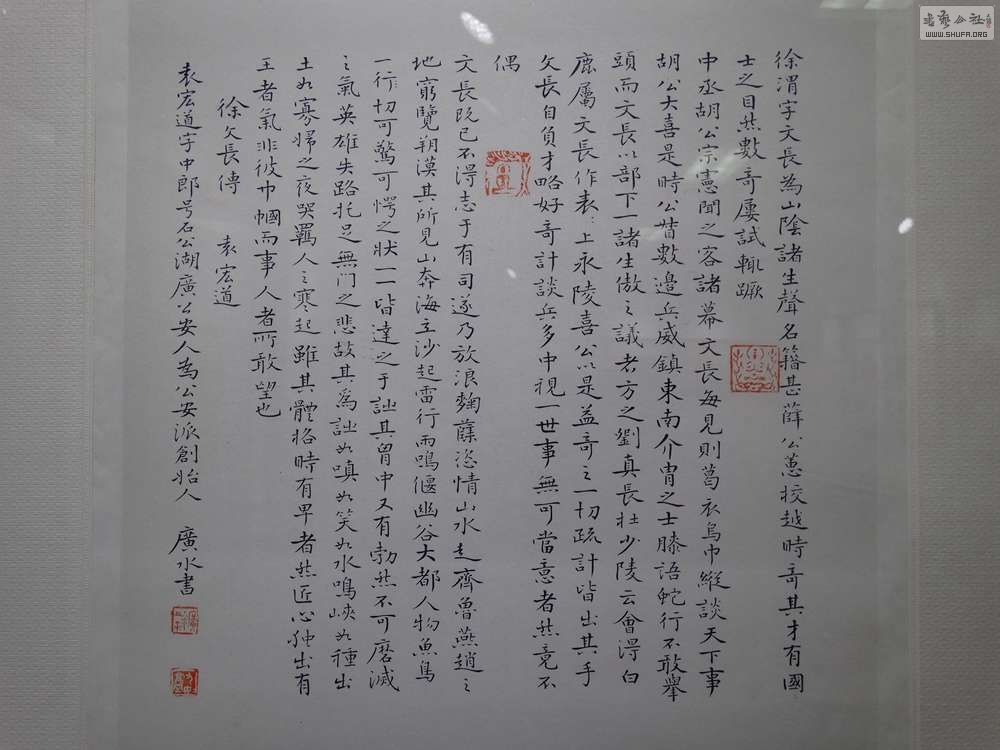 徐渭字文長為山陰諸生聲名籍甚薛公蕙校越時奇其才有國
士之目然數奇屢試輒蹶
中丞胡公宗憲聞之客諸幕文長每見則葛衣烏巾縱談天下事
胡公大喜是時公督數邊兵威鎮東南介冑之士膝語蛇行不敢舉
頭而文長以部下一諸生傲之議者方之劉真長杜少陵云會得白
鹿屬文長作表:上永陵喜公以是益奇之一切疏計皆出其手
文長自負才略好奇計談兵多中視一世事無可當意者然竟不
偶
文長既已不得志于有司遂乃放浪麴蘖恣情山水走齊魯燕趙之
地窮覽朔漠其所見山奔海立沙起雷行雨鳴偃幽谷大都人物魚鳥
一行切可驚可愕之狀一一皆達之于詘其胷中又有勃然不可磨滅
之氣英雄失路托足無門之悲故其為詘如嗔如笑如水鳴峽如種出
土如寡婦之夜哭羈人之寒起雖其體格時有卑者然匠心獨出有
王者氣非彼巾幗而事人者所敢望也
徐文長傳 袁宏道
袁宏道字中郎号石公湖廣公安人為公安派創始人 廣水書
WWW.SHUFA.ORG